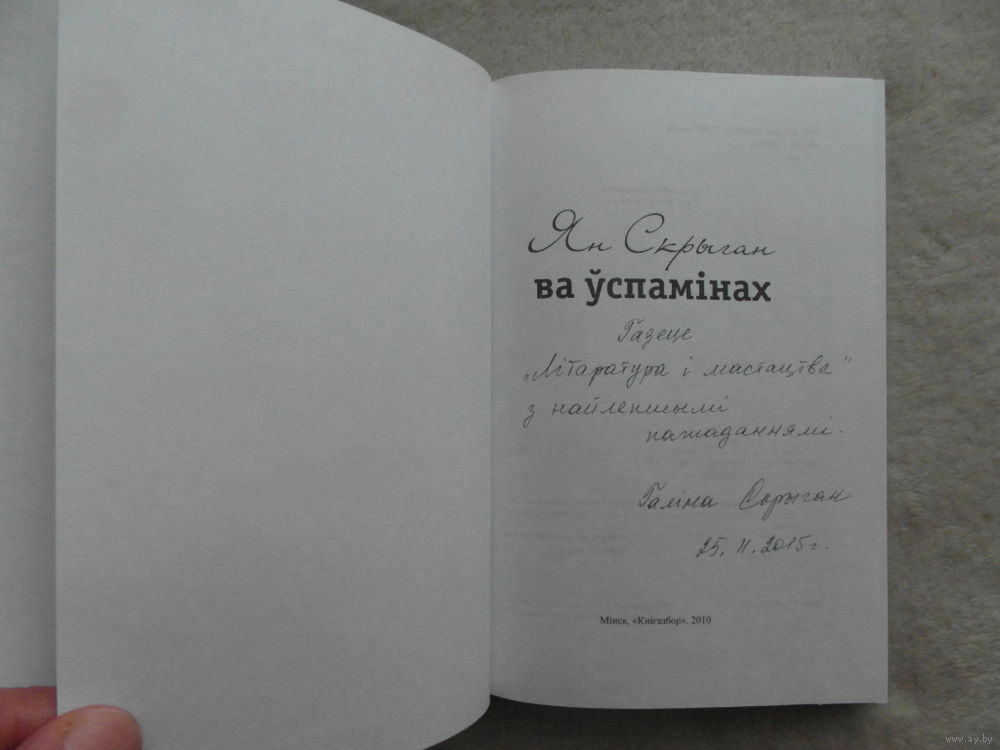 Ян Скрыган
ва ўспамінах
Газеце
„Літаратура і мастацтва"
з найлепшымі
пажаданнямі.
Галіна Скрыган
25.11.2015 г.
Мінск, «Кнігазбор», 2010
www.ay.by